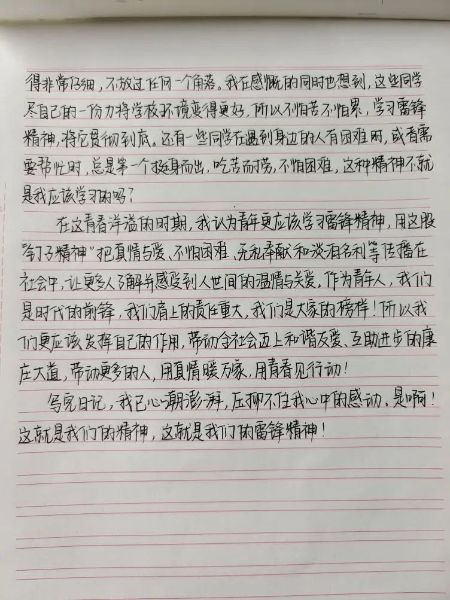 得非常仔细，不放过任何一个角落。我在感慨的同时也想到，这些同学
尽自己的一份力将学校环境变得更好，所以不怕苦不怕累，学习雷锋
精神，将它贯彻到底。还有一些同学在遇到身边的人有困难时，或者需
要帮忙时，总是第一个挺身而出，吃苦而捞，不怕困难，这种精神不就
是我应该学习的吗？
在这青春洋溢的时期，我认为青年更应该学习雷锋精神，用这股
"钉子精神"把真情与爱、不怕困难、无私奉献和淡泊名利等传播在
社会中，让更多人了解并感受到人世间的温情与关爱。作为青年人，我们
是时代的前锋，我们肩上的责任重大，我们是大家的榜样！所以我
们更应该发挥自己的作用，带动全社会迈上和谐友爱、互助进步的康
庄大道，带动更多的人，用真情暖万家，用青春见行动！
写完日记，我已心潮澎湃，压抑不住我心中的感动。是啊！
这就是我们的精神，这就是我们的雷锋精神！